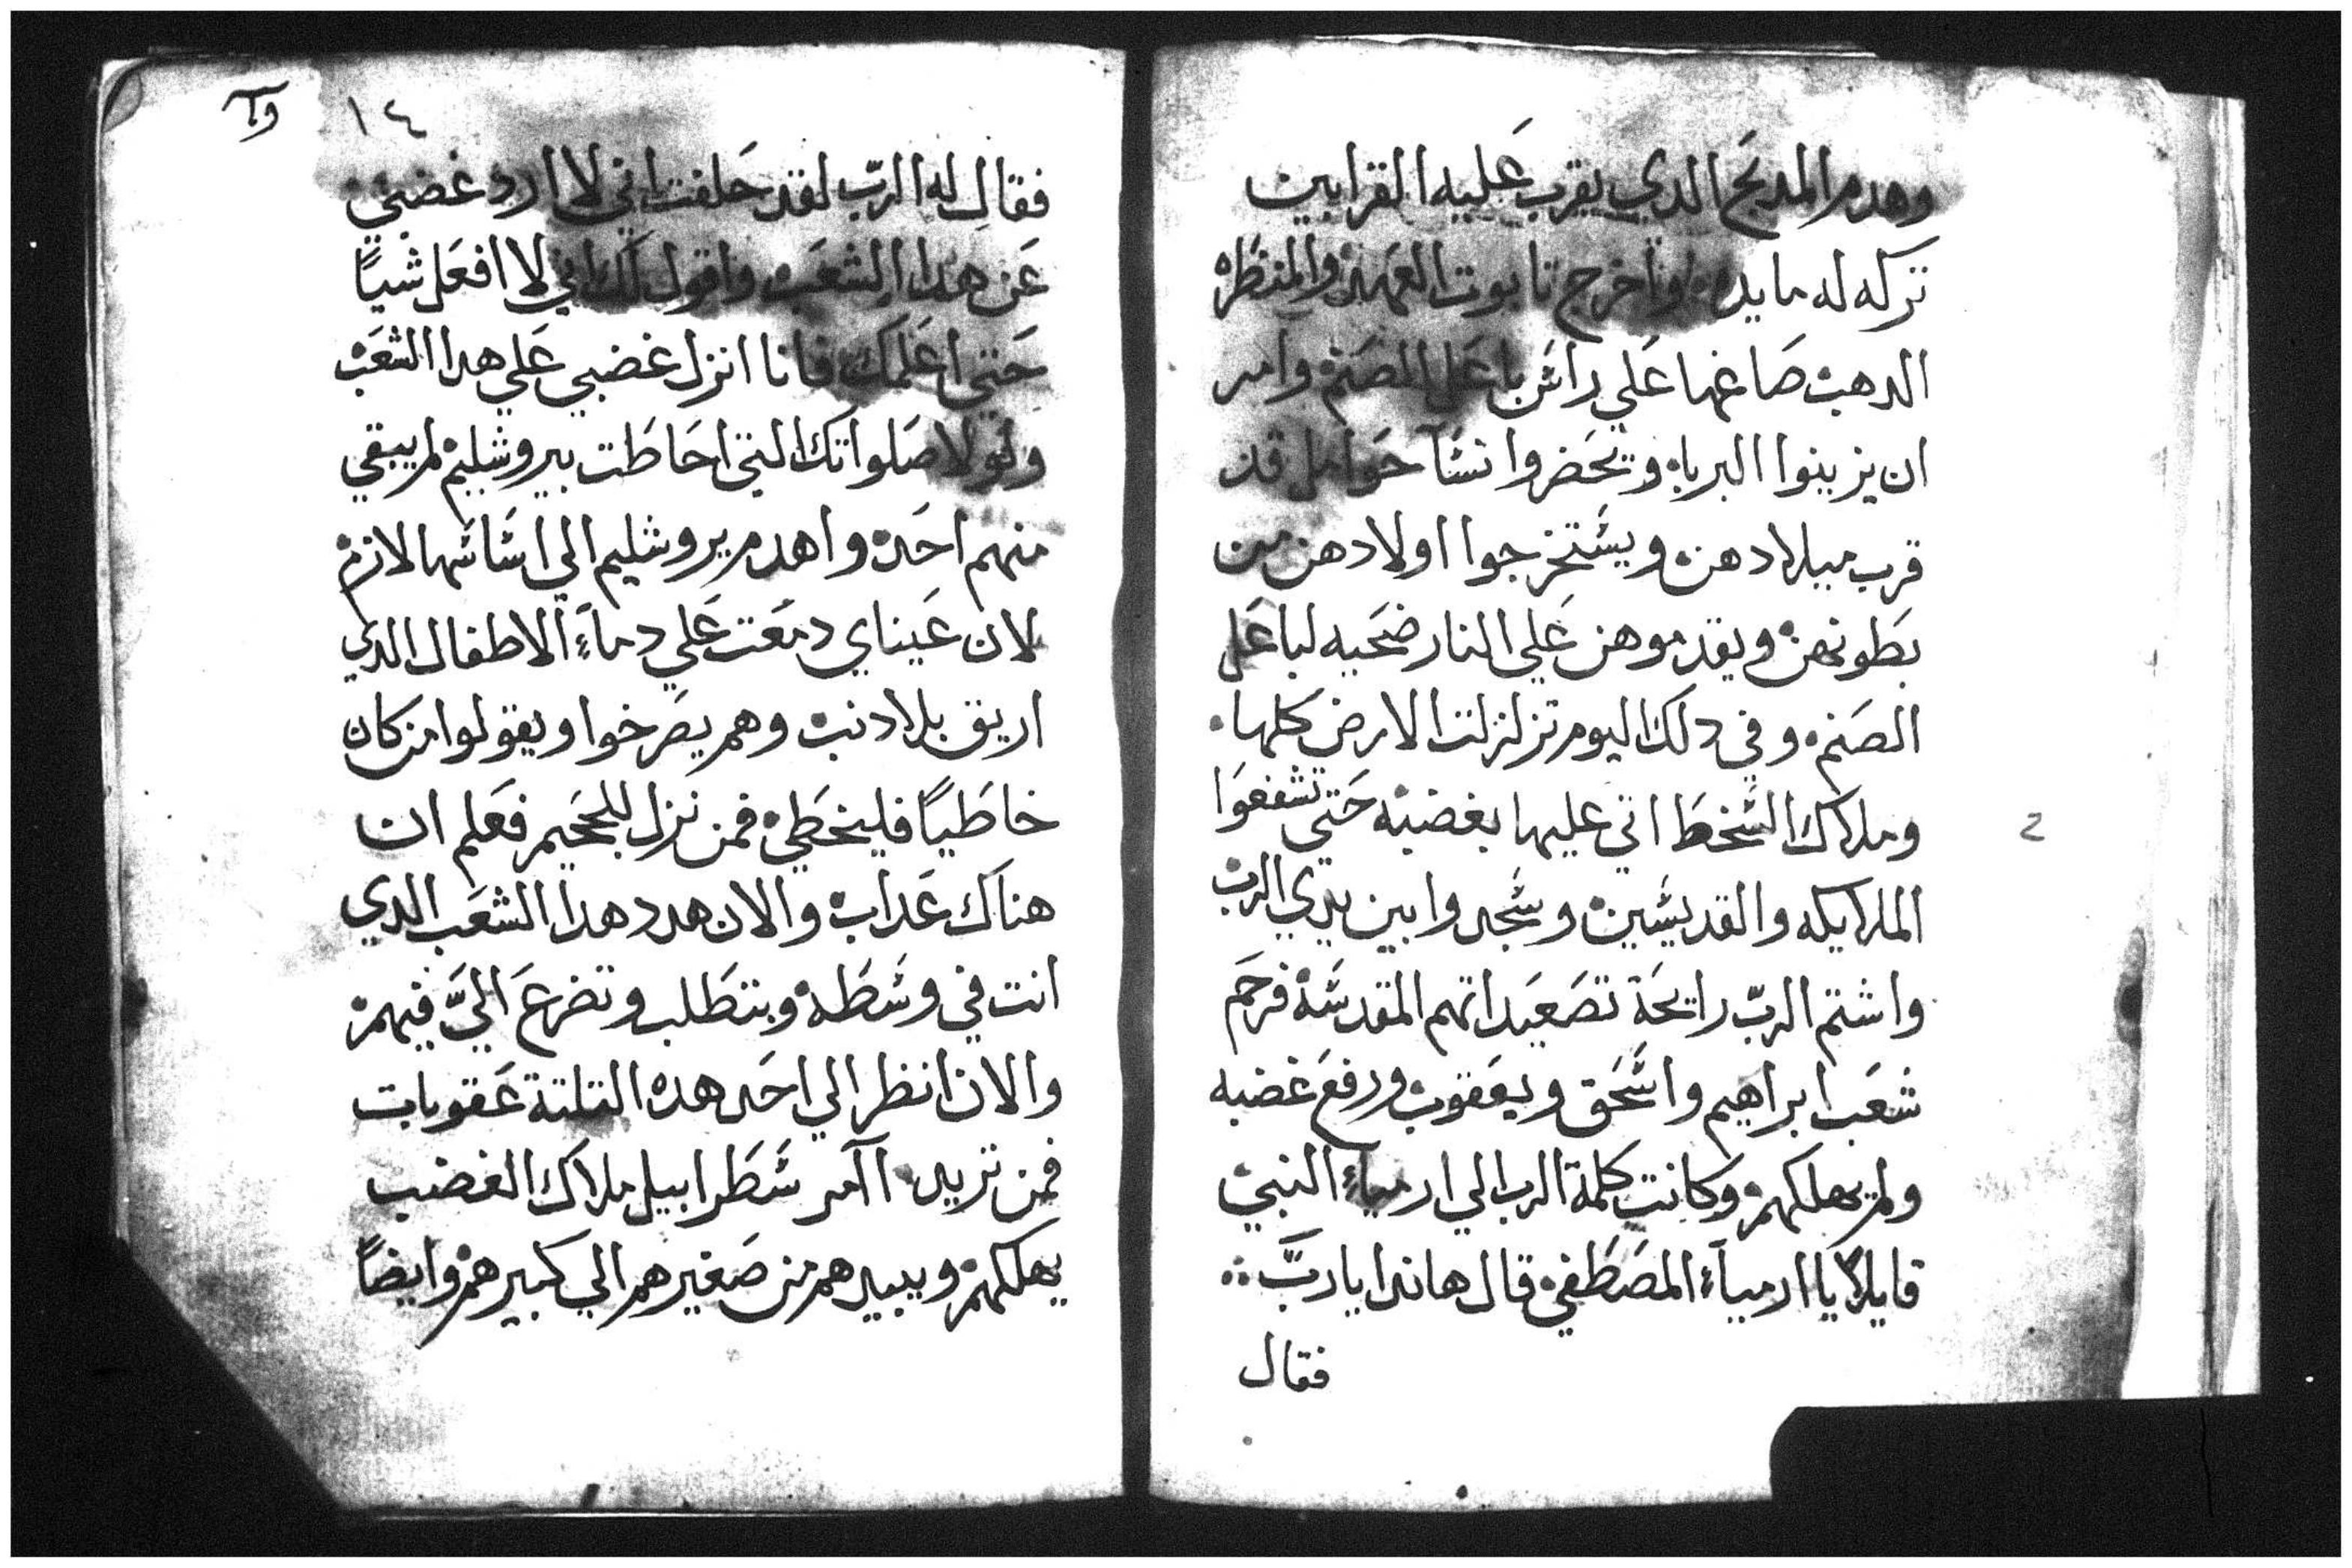 وهدم المدبَح الدي يقرب عَليه القرابين
تركه له مايده واخرج تابوت العَهد والمنظَره
الدهب صَاغها عَلي راسَ باعَل الصَنم وامر
ان يزينوا البرباه وتحَضروا نسَآ حَوامل قد
قرب ميلادهن ويسَتخرجوا اولادهن من
بطَونهن ويقدموهن عَلي النار ضحَيه لباعَل
الصَنم وفي دلك اليوم تزلزلت الارض كلها
وملاك السَّخطَ اتي عليها بغضبه حَتي تشفعَوا
الملايكه والقديسَين وسَجدوا بين يدي الرب
واشتم الربّ رايحَة تصَعيَداتهم المقدسَة فرحَم
شعَب ابراهيم واسَّحَق ويعَقوب ورفعَ غضبه
ولم يهلكهم وكانت كلمة الرب الي ارمياء النبي
قايلاً يا ارميآء المصَطَفي قال هاندا يا ربَّ
فقال
وآ
١٤
فقال له الربّ لقد حَلفت اني لا ارد غضبي
عَن هدا الشعَب واقول لك اني لا افعَل شياً
حَتي اعَلمك فانا انزل غضبي عَلي هدا الشعَب
ولولا صَلواتك التي احَاطَت بيروشليم لم يبقي
منهم احَد واهدم يروشليم الي اسَاسَها لازم
لان عَيناي دمعَت عَلي دمآء الاطفال الدي
اريق بلا دنب وهم يصَرخوا ويقولوا من كان
خاطَياً فليخطَي فمن نزل للجحَيم فعَلم ان
هناك عَداب والان هدد هدا الشعَب الدي
انت في وسَطَه وبتطَلب وتضرعَ اليَّ فيهم
والان انظر الي احَد هده التلتة عَقوبات
فمن تريد اآمر سَطَرابيل ملاك الغضب
يهلكهم ويبيدهم من صَغيرهم الي كبيرهم وايضاً